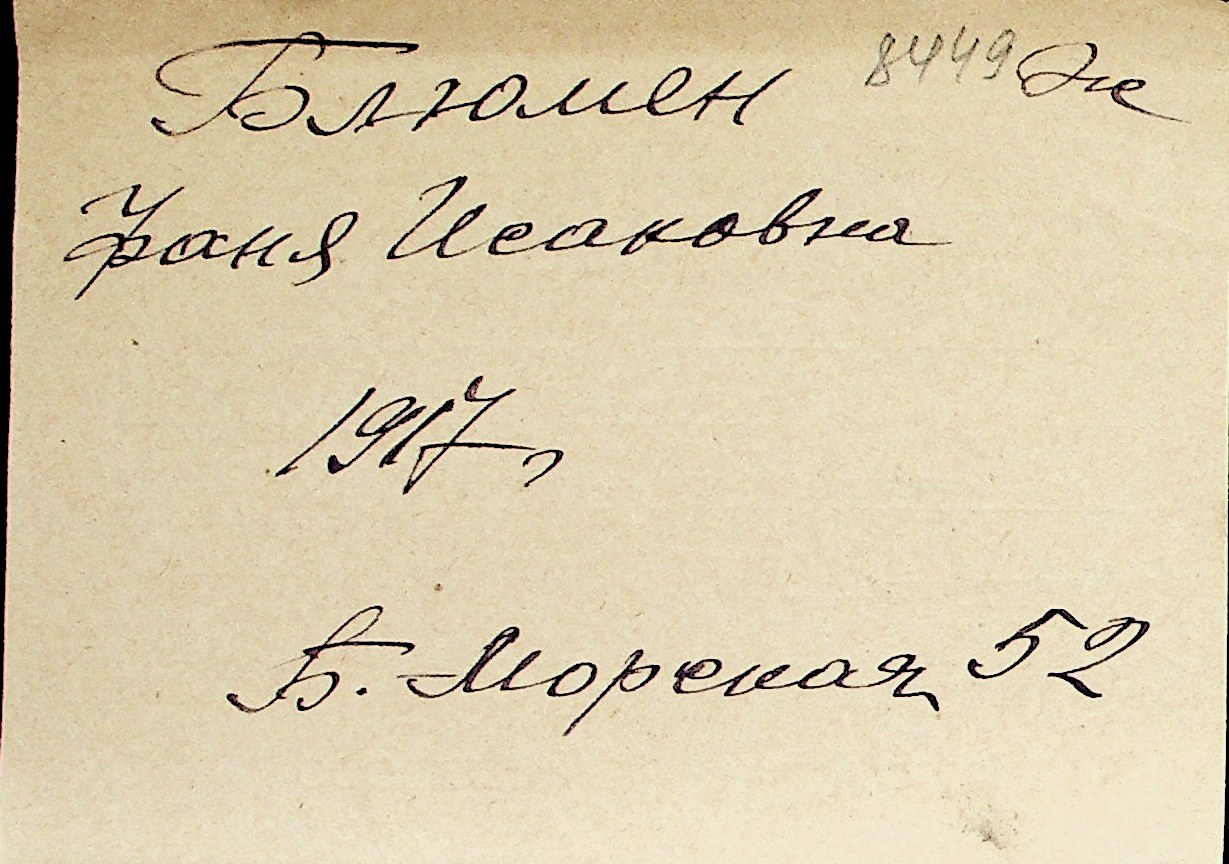 Блюмен 8449 Же
Фаня Исаковна
1917 г
Б. Морская, 52